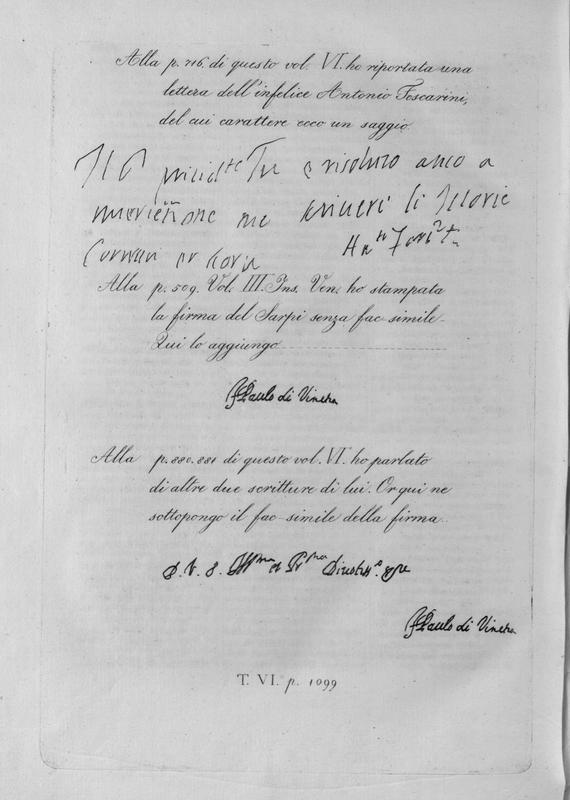 Alla p. 716. di questo vol. VI. ho riportata una
lettera dell'infelice Antonio Foscarini,
del cui carattere ecco un saggio.
risoluto anco a
me li Istorie
Alla p. 509. Vol. III. Ins. Ven. ho stampata
la firma del Sarpi senza fac-simile.
Qui lo aggiungo
F. Paulo di Vinetia
Alla p. 880. 881 di questo vol. VI. ho parlato
di altre due scritture di lui. Or qui ne
sottopongo il fac-simile della firma.
D. V. S. Ill.ma et
F. Paulo di Vinetia
T. VI. p. 1099